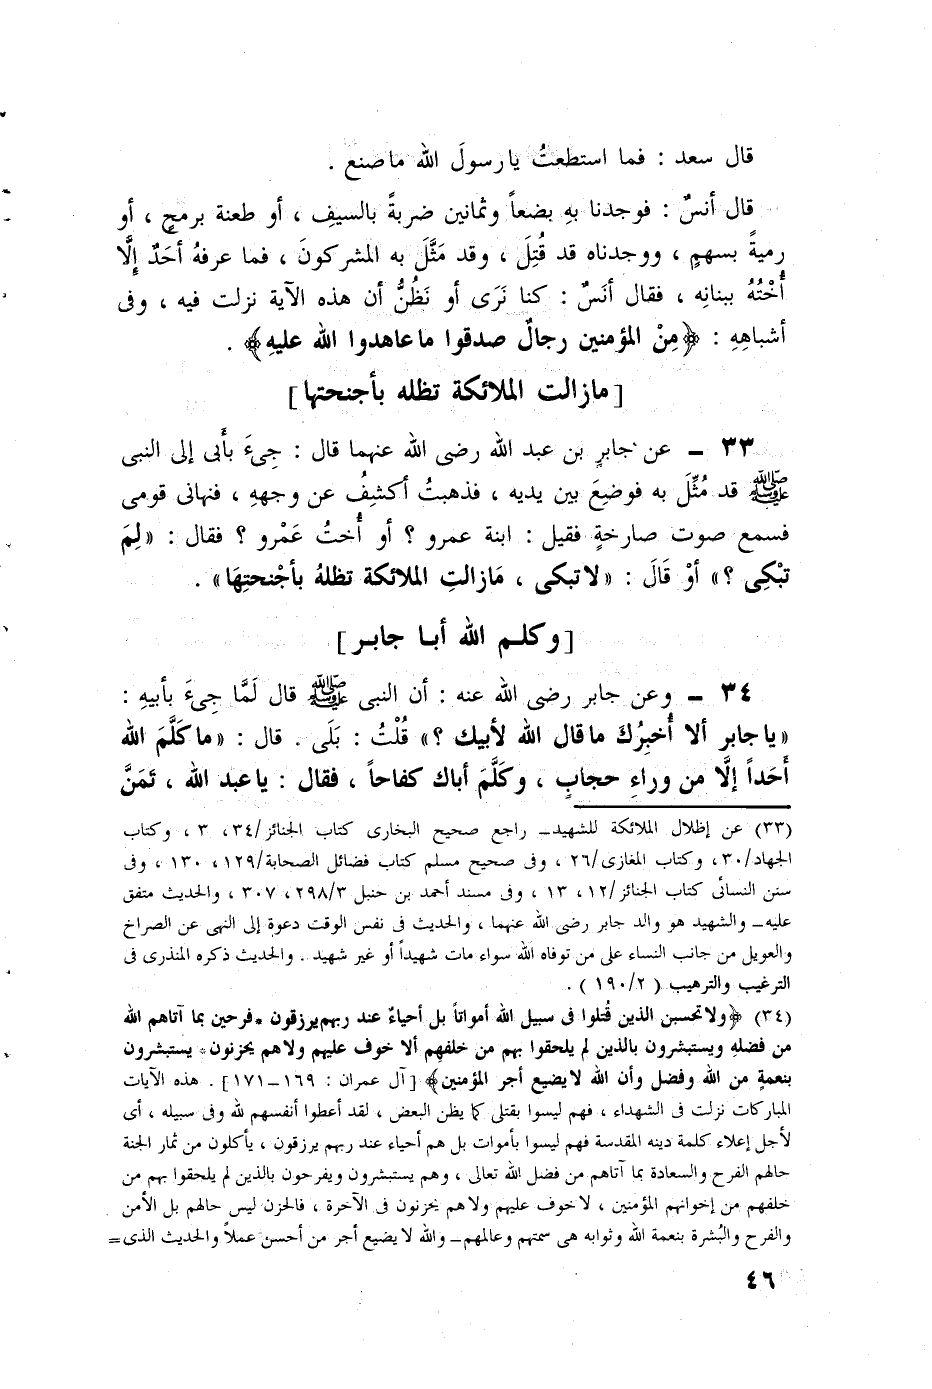 قال سعد : فما استطعتُ يا رسولَ الله ما صنع .
قال أنسٌ : فوجدنا بهِ بضعاً وثمانين ضربةً بالسيفِ ، أو طعنة برمحٍ ، أو
رميةً بسهمٍ ، ووجدناه قد قُتِلَ ، وقد مَثَّلَ به المشركونَ ، فما عرفهُ أحَدٌ إلَّا
أُخْتُهُ ببنانِه ، فقال أنَسٌ : كنا نَرَى أو نَظُنُّ أن هذه الآية نزلت فيه ، وفى
أشباهِهِ : ﴿مِنْ المؤمنين رجالٌ صدقوا ما عاهدوا الله عليهِ﴾ .
[ما زالت الملائكة تظله بأجنحتها]
٣٣ ــ عن جابرٍ بن عبد الله رضى الله عنهما قال : جِىءَ بأَبى إلى النبى
ﷺ قد مُثِّلَ به فوضِعَ بين يديه ، فذهبتُ أكشِفُ عن وجههِ ، فنهانى قومى
فسمع صوت صارخةٍ فقيل : ابنة عمرو ؟ أو أُختُ عَمْرو ؟ فقال : «لِمَ
تبْكِى ؟» أوْ قَالَ : «لا تبكى ، مَا زالتِ الملائكة تظلهُ بأجْنحتِهَا» .
[وكلـم الله أبـا جابـر]
٣٤ ــ وعن جابر رضى الله عنه : أن النبى ﷺ قال لَمَّا جِىءَ بأبيهِ :
«يا جابر ألا أُخبِرُكَ ما قال الله لأبيك ؟» قُلْتُ : بَلَى . قال : «ما كَلَّمَ الله
أَحَداً إلَّا من وراءِ حجابٍ ، وكَلَّمَ أباك كفاحاً ، فقال : يا عبد الله ، تَمَنَّ
(٣٣) عن إظلال الملائكة للشهيد ــ راجع صحيح البخارى كتاب الجنائز/٣٤، ٣ ، وكتاب
الجهاد/٣٠، وكتاب المغازى/٢٦ ، وفى صحيح مسلم كتاب فضائل الصحابة/١٢٩، ١٣٠ ، وفى
سنن النسائى كتاب الجنائز/١٢، ١٣ ، وفى مسند أحمد بن حنبل ٢٩٨/٣، ٣٠٧ ، والحديث متفق
عليه ــ والشهيد هو والد جابر رضى الله عنهما ، والحديث فى نفس الوقت دعوة إلى النهى عن الصراخ
والعويل من جانب النساء على من توفاه الله سواء مات شهيداً أو غير شهيد . والحديث ذكره المنذرى فى
الترغيب والترهيب ( ١٩٠/٢ ) .
(٣٤) ﴿ولا تحسبن الذين قُتلوا فى سبيل الله أمواتاً بل أحياءٌ عند ربهم يرزقون * فرحين بما آتاهم الله
من فضله ويستبشرون بالذين لم يلحقوا بهم من خلفهم ألا خوف عليهم ولا هم يحزنون * يستبشرون
بنعمةٍ من الله وفضل وأن الله لا يضيع أجر المؤمنين﴾ [آل عمران : ١٦٩ــ١٧١] . هذه الآيات
المباركات نزلت فى الشهداء ، فهم ليسوا بقتلى كما يظن البعض ، لقد أعطوا أنفسهم لله وفى سبيله ، أى
لأجل إعلاء كلمة دينه المقدسة فهم ليسوا بأموات بل هم أحياء عند ربهم يرزقون ، يأكلون من ثمار الجنة
حالهم الفرح والسعادة بما آتاهم من فضل الله تعالى ، وهم يستبشرون ويفرحون بالذين لم يلحقوا بهم من
خلفهم من إخوانهم المؤمنين ، لا خوف عليهم ولا هم يحزنون فى الآخرة ، فالحزن ليس حالهم بل الأمن
والفرح والبُشرة بنعمة الله وثوابه هى سمتهم وعالمهم ــ والله لا يضيع أجر من أحسن عملاً والحديث الذى =
٤٦